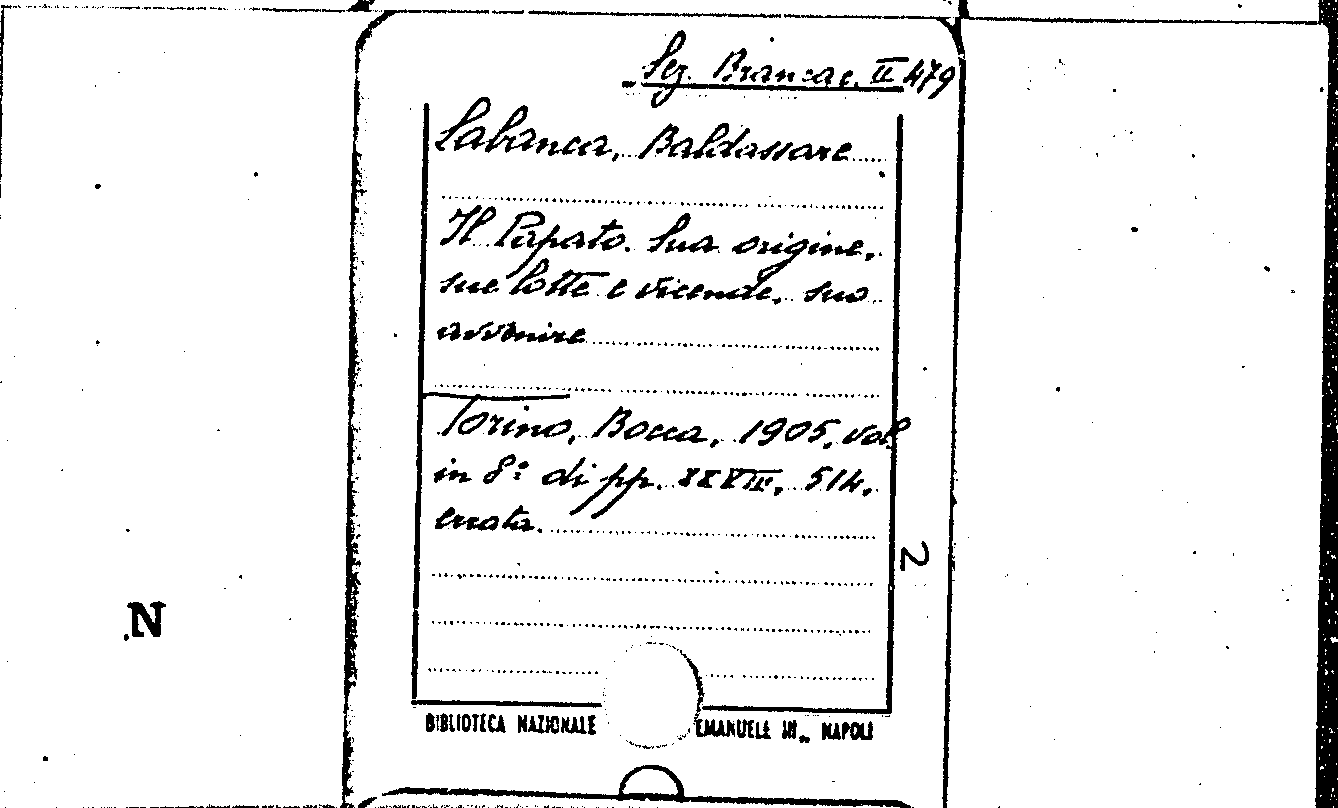 Sez. Brancac. II 479
Labanca, Baldassare
Il Papato. Sua origine,
sue lotte e vicende, suo
avvenire
Torino, Bocca, 1905, vol.
in 8° di pp. XXXVII, 514,
errata.
2
N
BIBLIOTECA NAZIONALE EMANUELE III„ NAPOLI